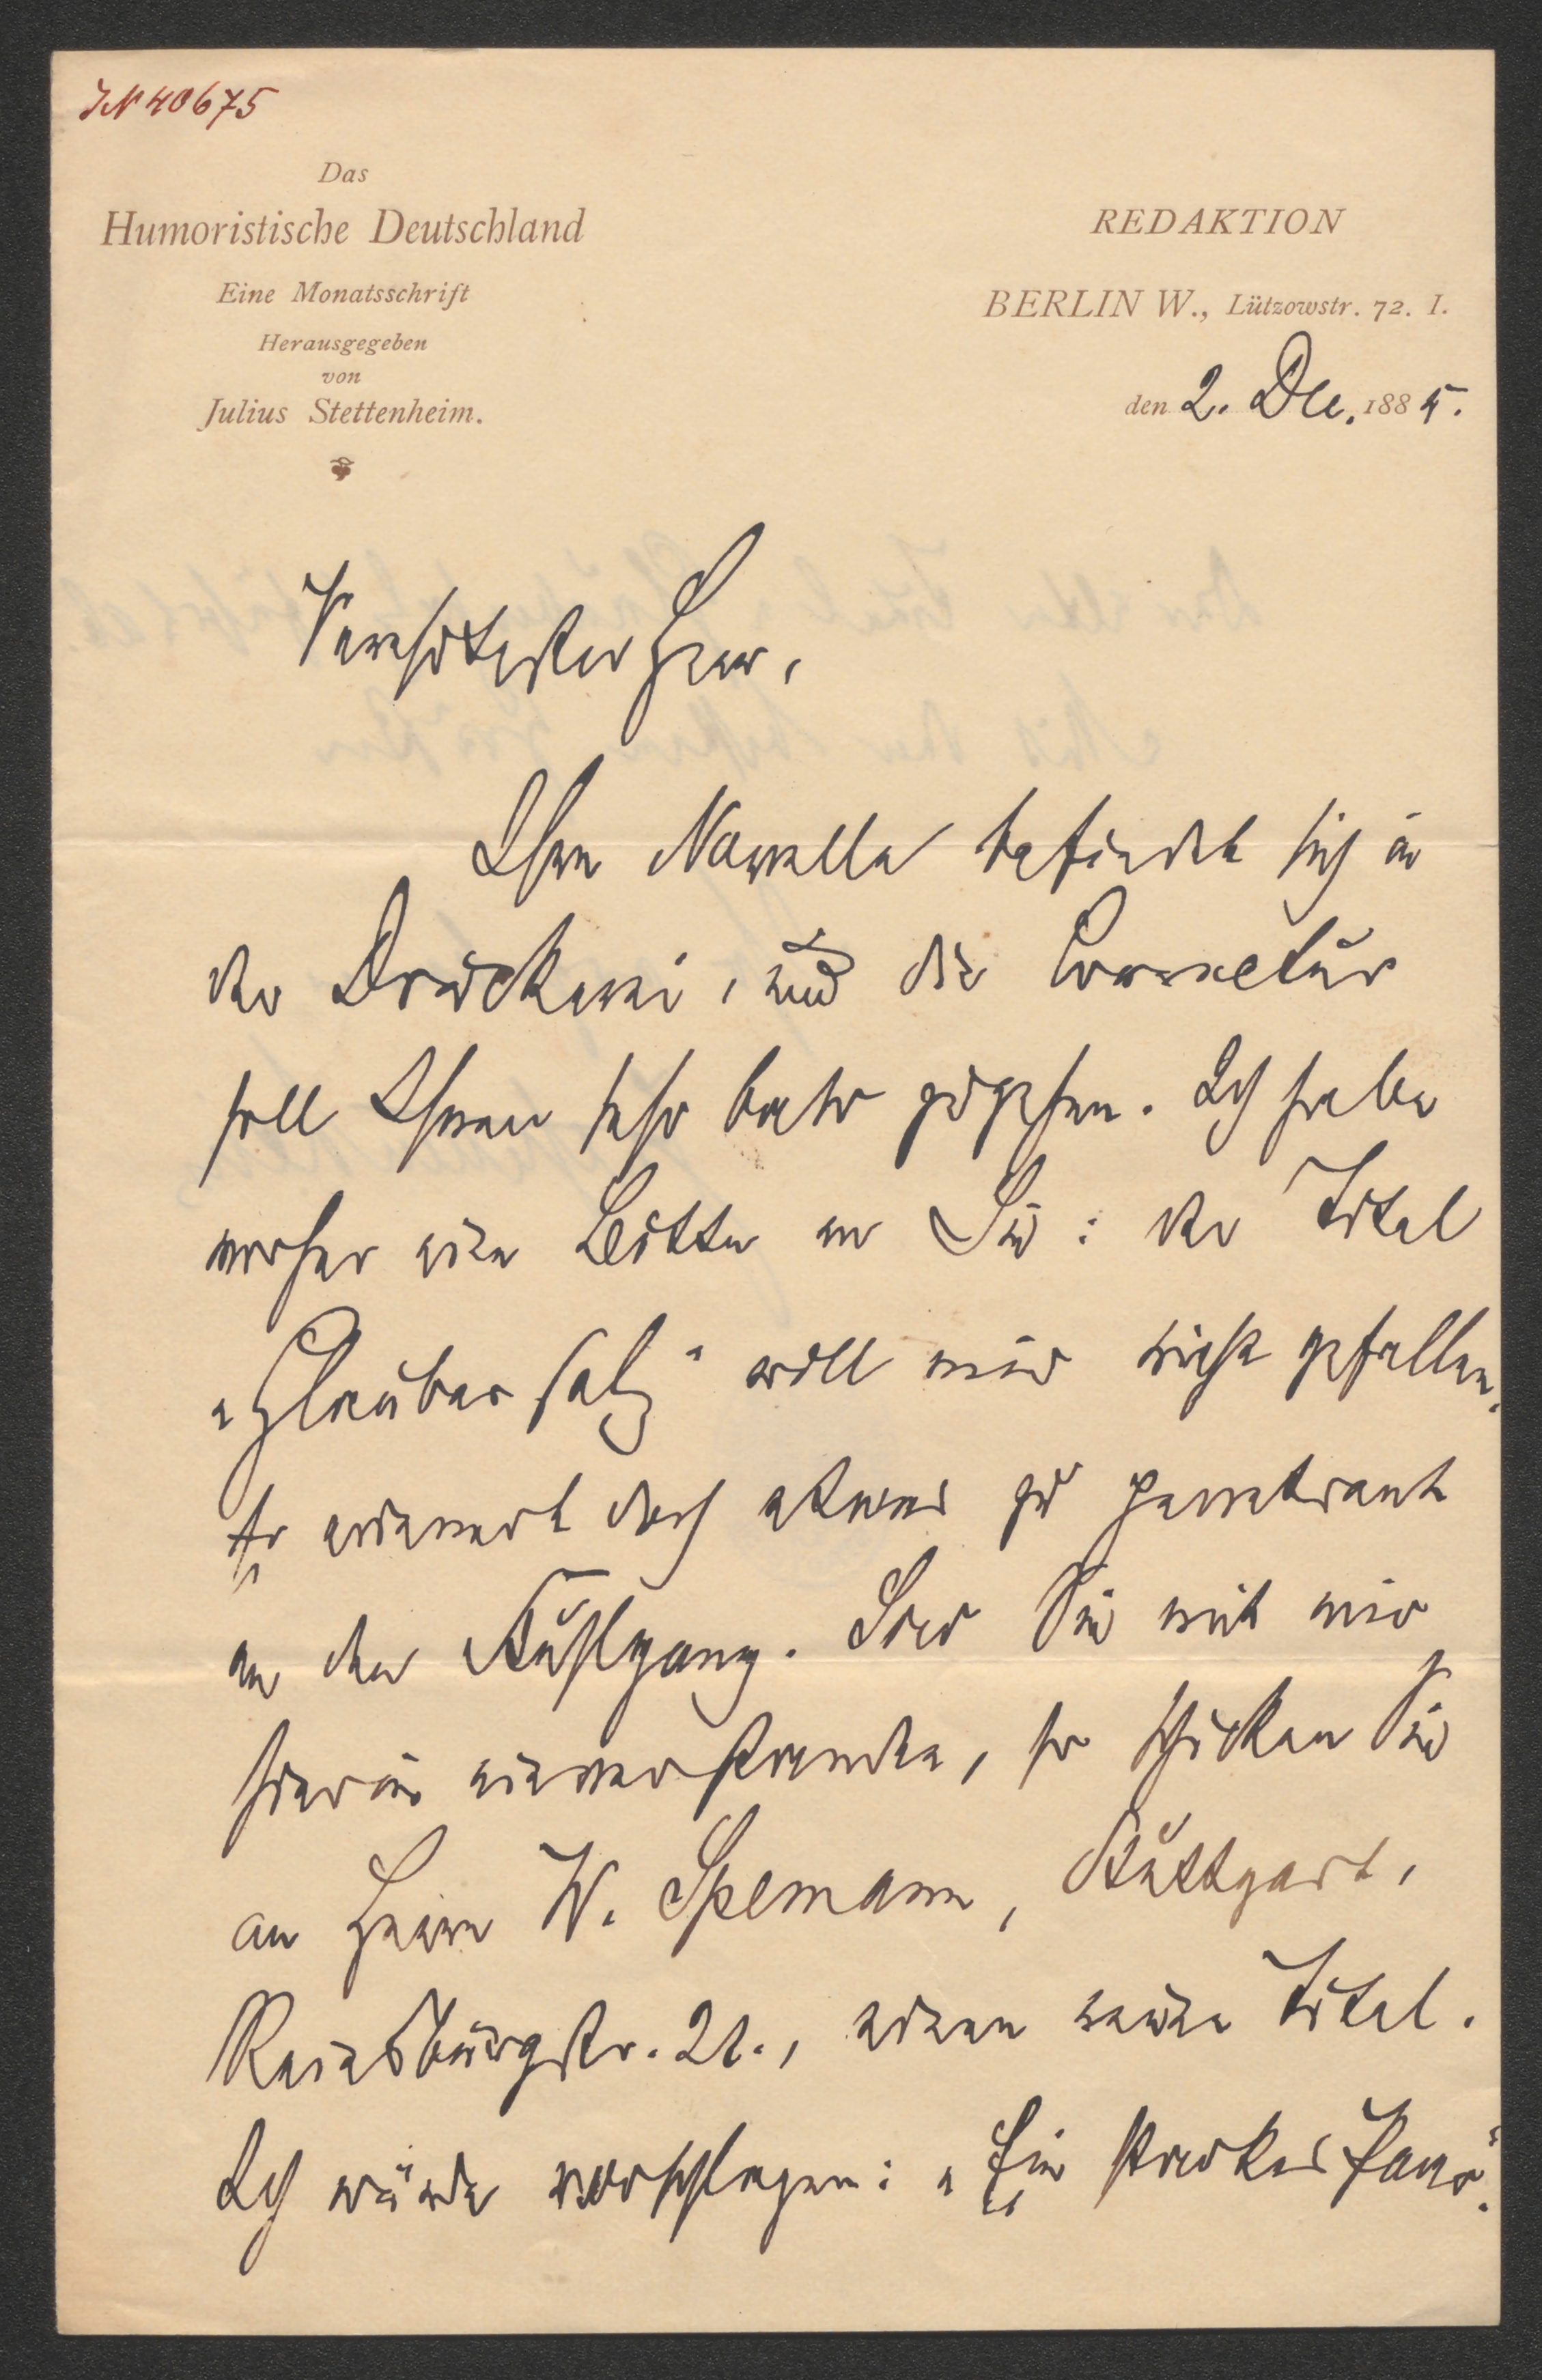 IN 40675
Das
Humoristische Deutschland
Eine Monatsschrift
Herausgegeben
von
Julius Stettenheim.
REDAKTION
BERLIN W., Lützowstr. 72. I.
den 2. Dec. 1885.
Verehrtester Herr,
Ihre Novelle befindet sich in
der Druckerei, und die Correctur
soll Ihnen sehr bald zugehen. Ich habe
vorher eine Bitte an Sie: der Titel
„Glaubersalz" will mir nicht gefallen.
Er erinnert doch etwas zu penetrant
an den Stuhlgang. Sind Sie mit mir
hierin einverstanden, so schicken Sie
an Herrn W. Spemann, Stuttgart,
Reinsburgstr. 21., einen neuen Titel.
Ich würde vorschlagen: „Ein starkes